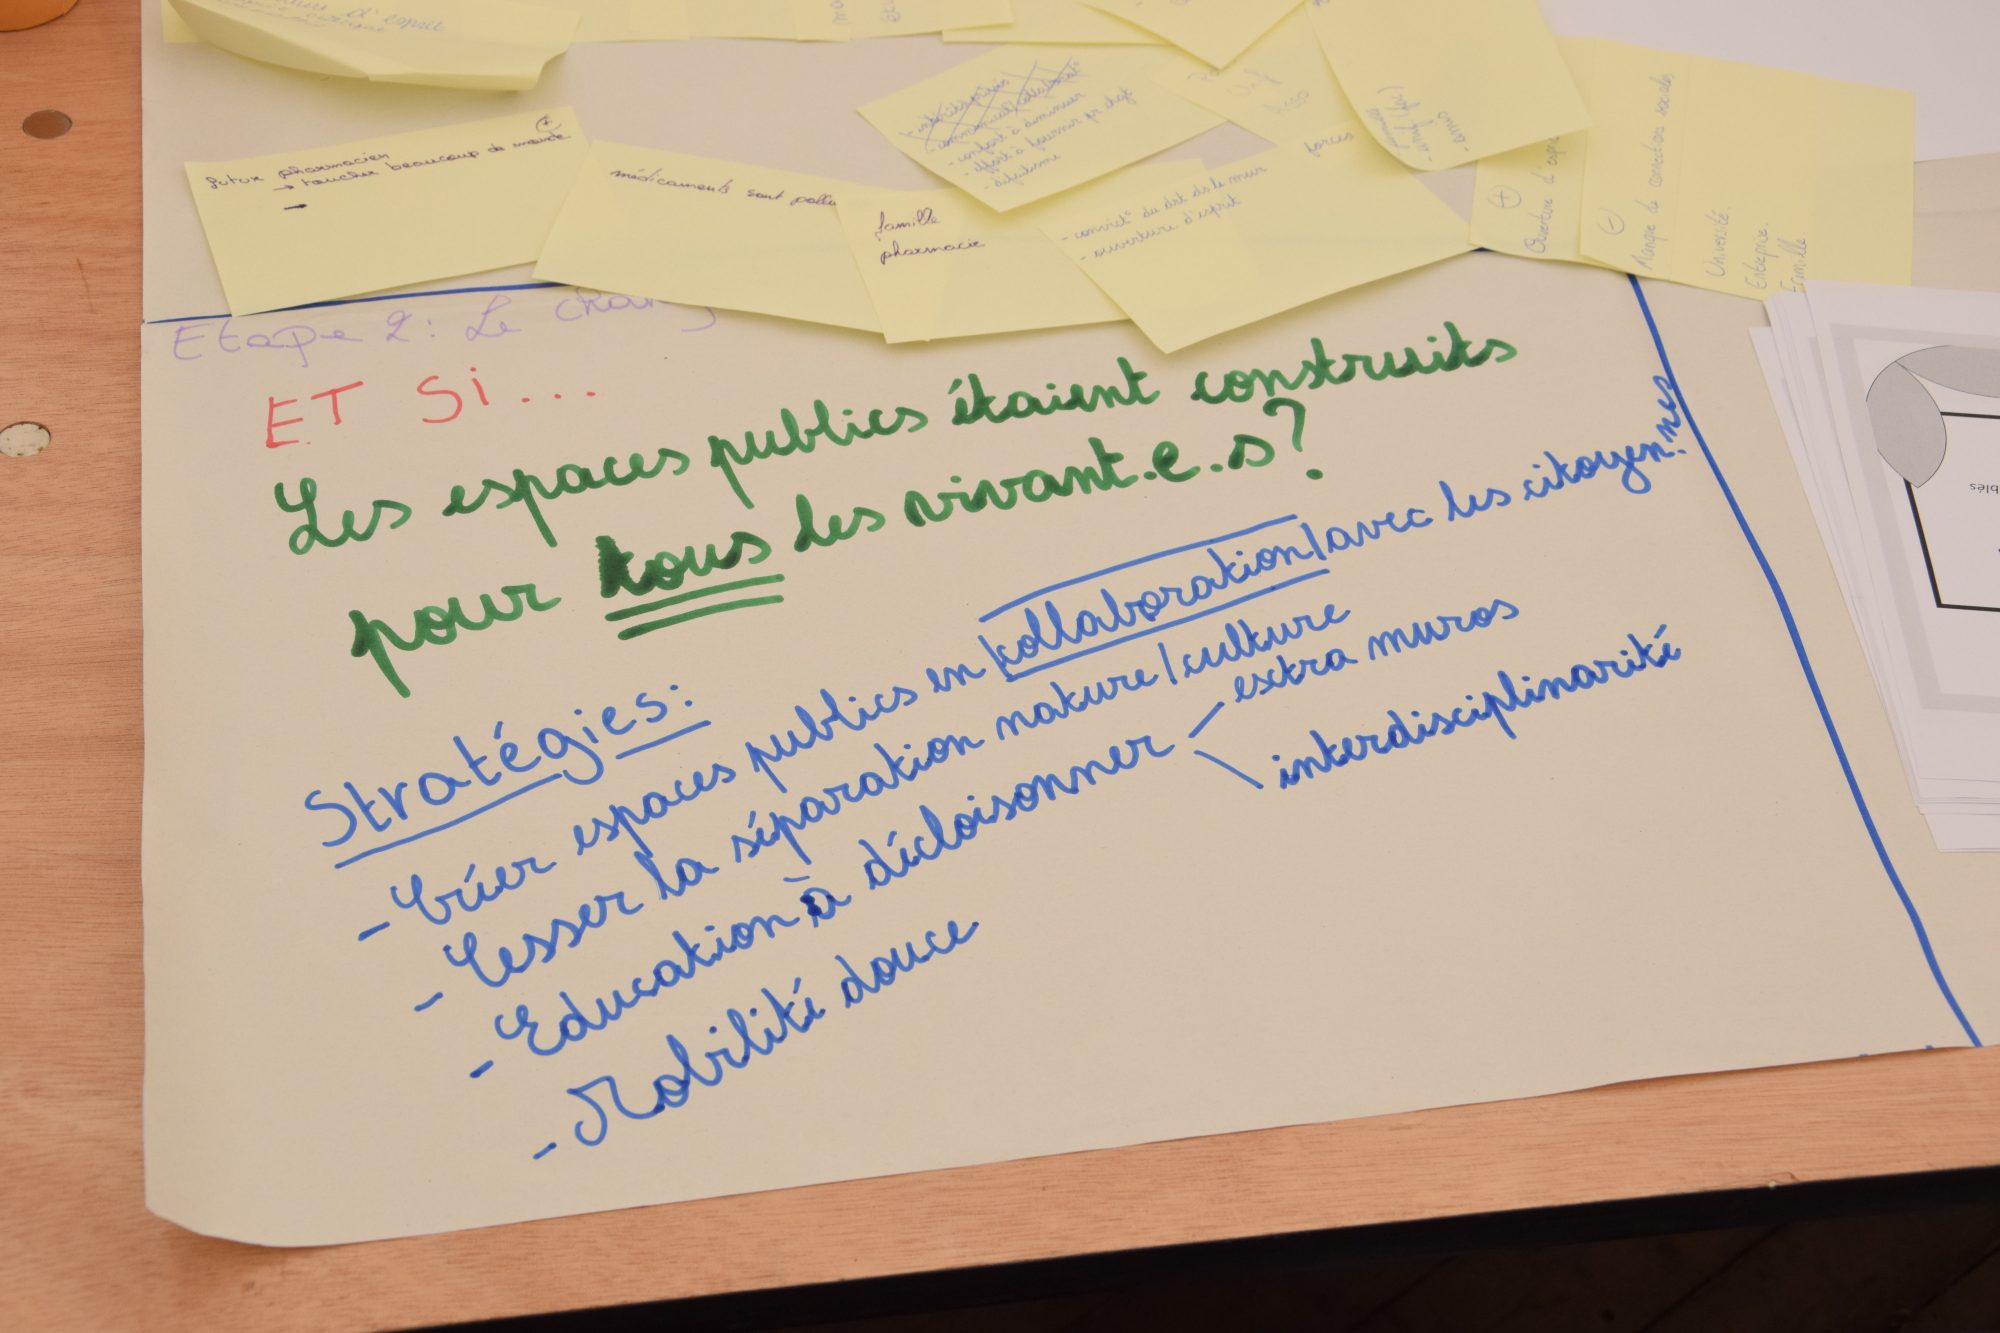 futur pharmacien
→ toucher beaucoup de monde
médicaments sont pollu
famille
pharmacie
- confort à diminuer
- effort à fournir pr chgt
- défaitisme
forces
- convict° du drt ds le mur
- ouverture d'esprit
Ouverture d'esprit
Manque de connections sociales
Université.
Entreprise
Famille
Etape 2: Le chang
ET Si...
Les espaces publics étaient construits
pour tous les vivant.e.s?
Stratégies:
- Créer espaces publics en collaboration avec les citoyen.nes
- Cesser la séparation nature/culture
- Education à décloisonner
extra muros
interdisciplinarité
- Mobilité douce